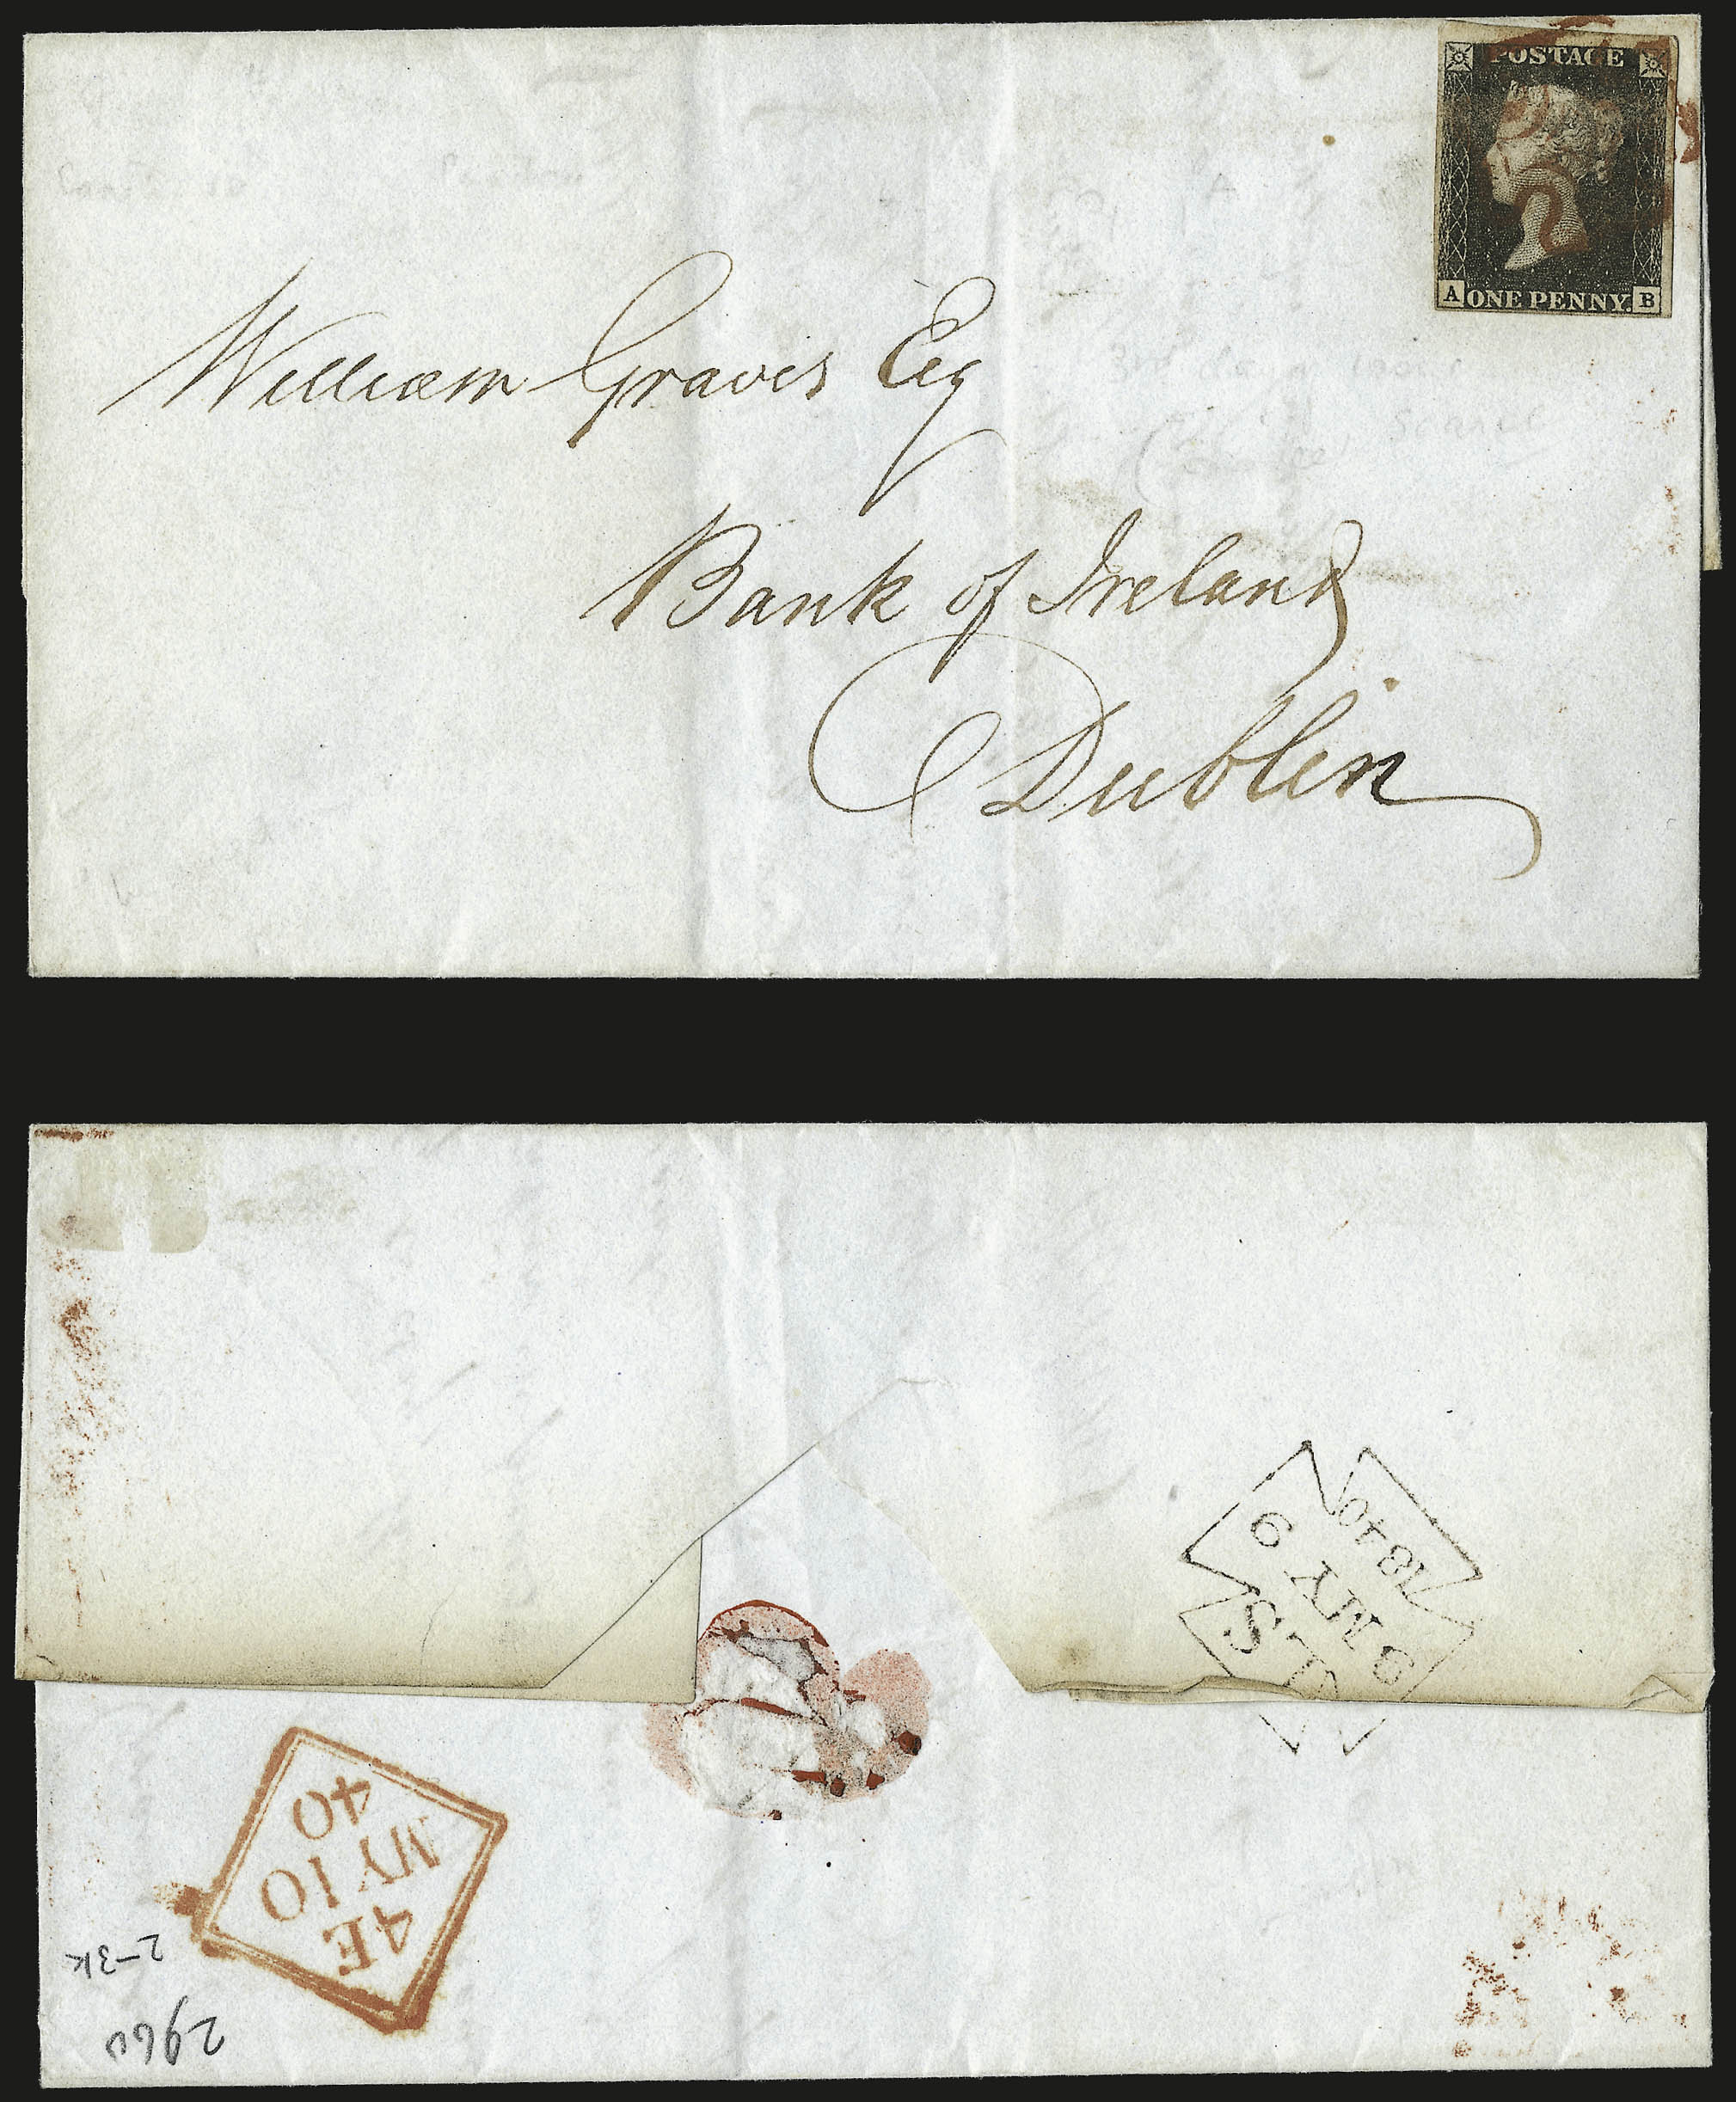 POSTAGE
A ONE PENNY. B
William Graves Esq
Bank of Ireland
Dublin
3rd day of
Scarce
LS
9 MY 9
1840
4E
MY 10
40
2-3K
2960